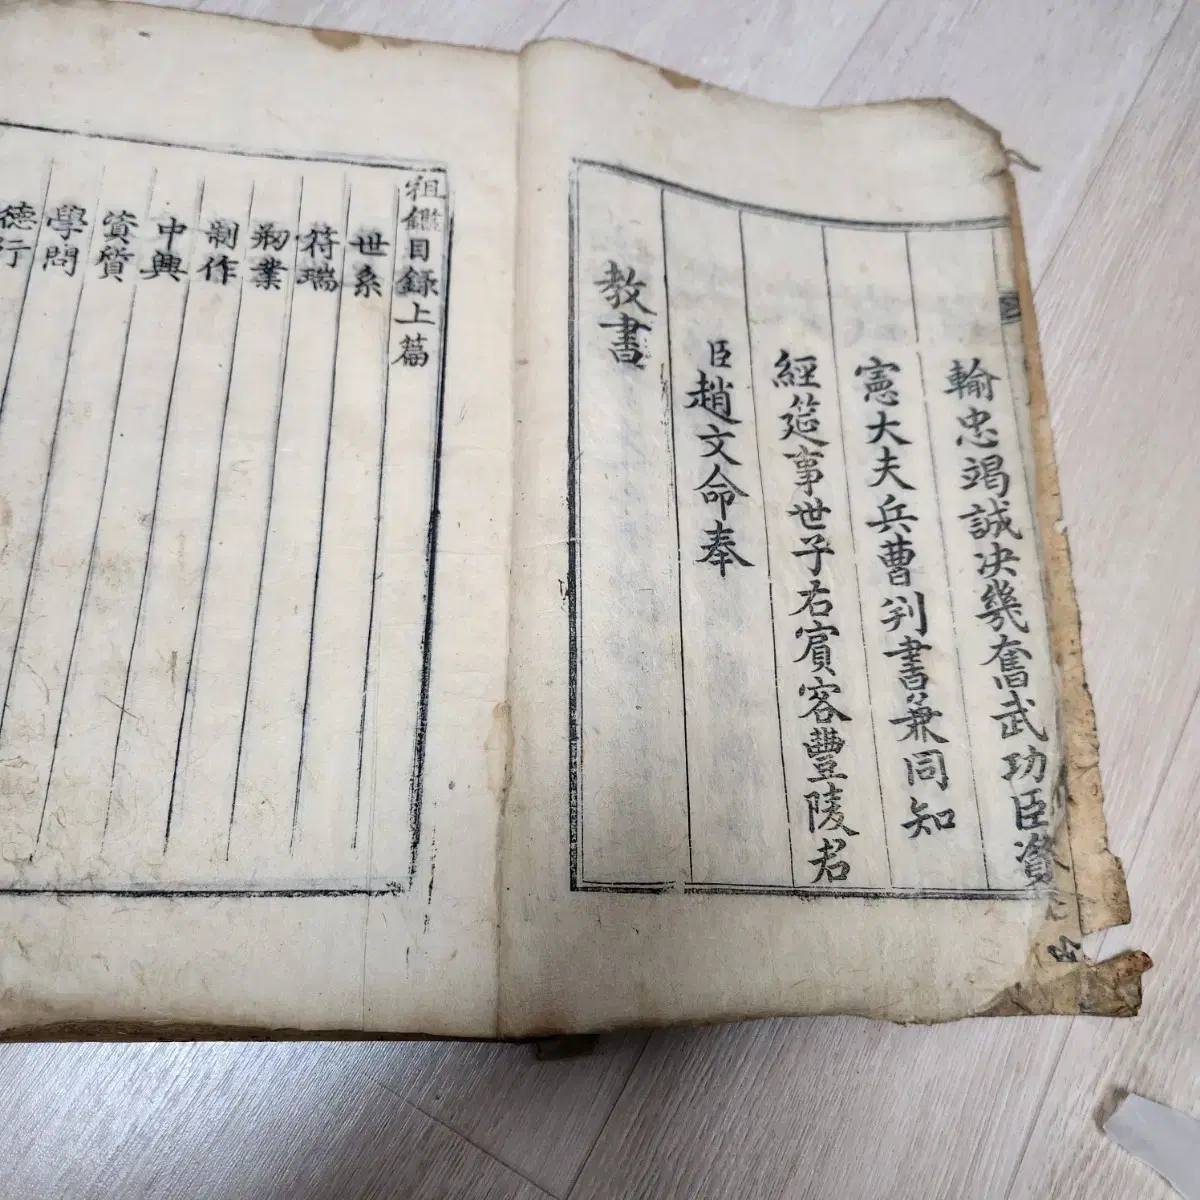 輸忠竭誠決幾奮武功臣資
憲大夫兵曹判書兼同知
經筵事世子右賓客豐陵君
臣趙文命奉
教書
祖鑑目錄上篇
世系
符瑞
刱業
制作
中興
資質
學問
德行